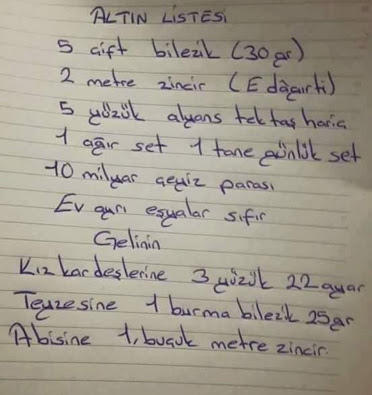 ALTIN LİSTESİ
5 çift bilezik (30 gr)
2 metre zincir (
5 yüzük alyans tek taş hariç
1 ağır set 1 tane günlük set
10 milyar çeyiz parası
Ev ayrı eşyalar sıfır
Gelinin
Kız kardeşlerine 3 yüzük 22 ayar
Teyzesine 1 burma bilezik 25 gr
Abisine 1, buçuk metre zincir.